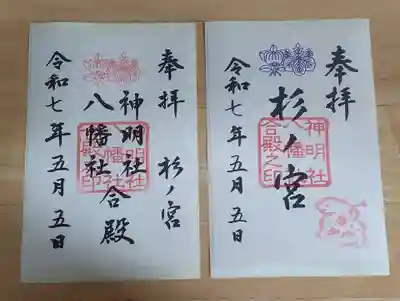 奉拝 杉ノ宮
神明社
八幡社
合殿
令和七年五月五日
奉拝
杉ノ宮
神明社
八幡社
合殿之印
令和七年五月五日